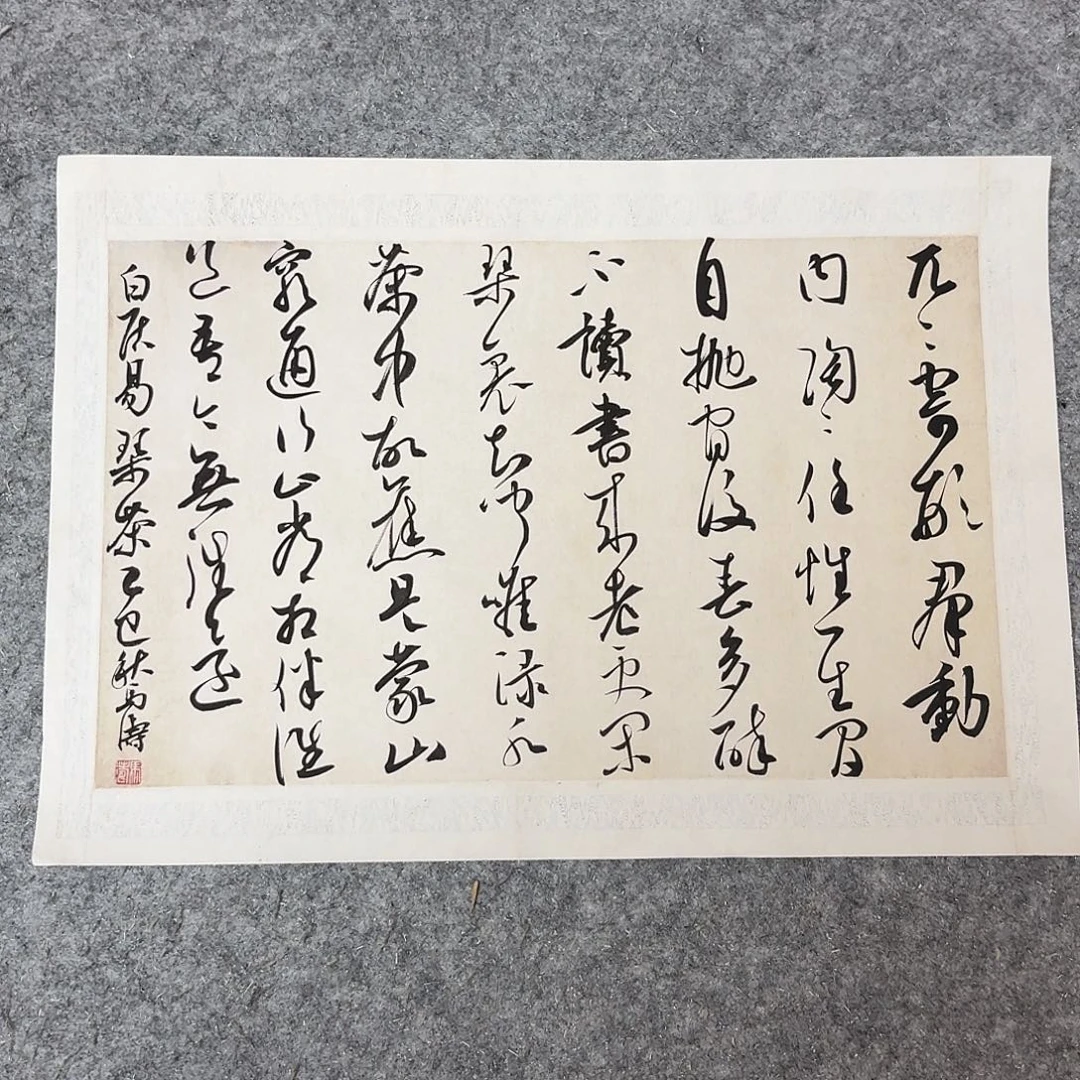 兀々寄形羣動
内陶々任性一生間
自抛官後春多醉
不讀書来老更閑
琴裏知聞唯渌水
茶中故舊是蒙山
窮通行止長相伴誰
道吾今無往還
白居易琴茶乙巳秋馬濤